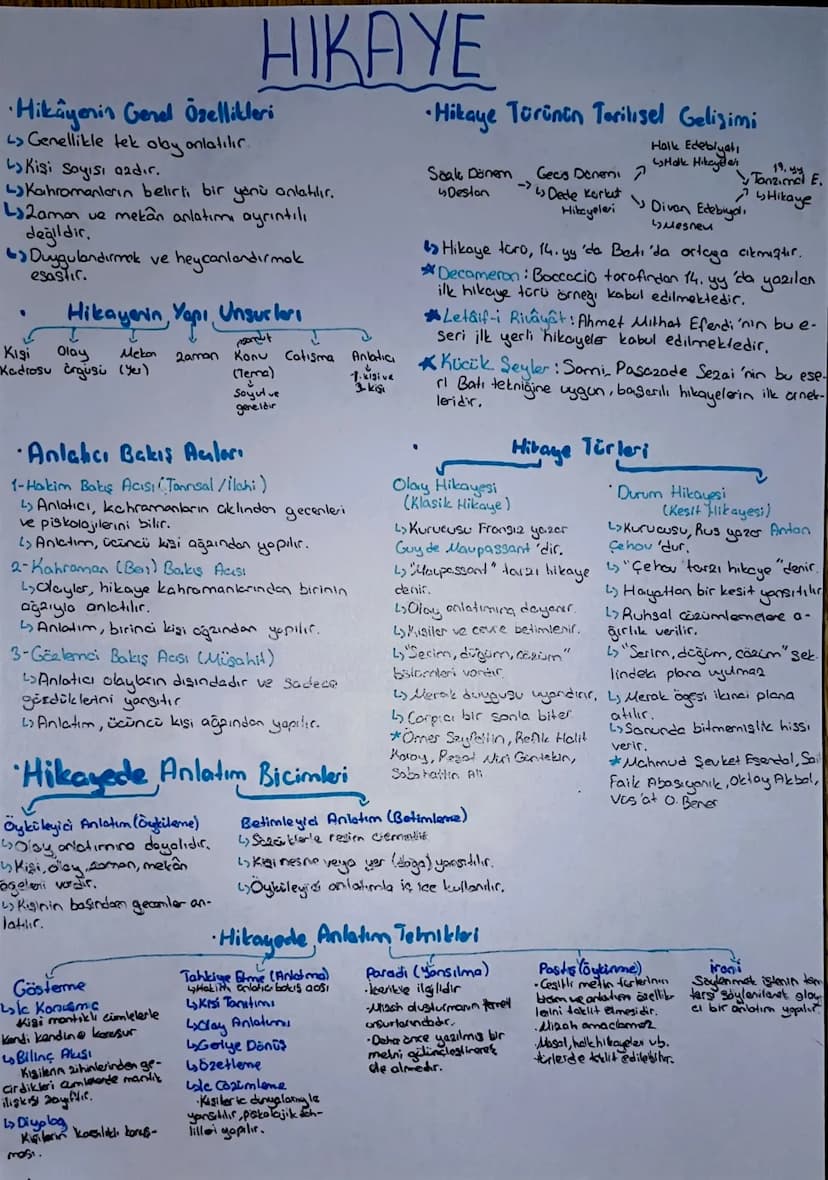 HİKAYE
• Hikâyenin Genel Özellikleri
↳ Genellikle tek olay anlatılır.
↳ Kişi sayısı azdır.
↳ Kahramanların belirli bir yönü anlatılır.
↳ Zaman ve mekân anlatımı ayrıntılı
değildir.
↳ Duygulandırmak ve heycanlandırmak
esastır.
• Hikayenin Yapı Unsurları
Kişi
Kadrosu
Olay
örgüsü
Mekan
(Yer)
Zaman
somut
Konu
(Tema)
↓
Soyut ve
geneldir
Çatışma
Anlatıcı
↓
1. kişi ve
3. kişi
• Hikaye Türünün Tarihsel Gelişimi
Sözlü Dönem
↳ Destan
→ Geçiş Dönemi
↳ Dede Korkut
Hikayeleri
Halk Edebiyatı
↳ Halk Hikayeleri
Divan Edebiyatı
↳ Mesnevi
19. yy
Tanzimat E.
↳ Hikaye
↳ Hikaye türü, 14. yy'da Batı'da ortaya çıkmıştır.
* Decameron : Boccocio tarafından 14. yy'da yazılan
ilk hikaye türü örneği kabul edilmektedir.
* Letâif-i Rivâyât : Ahmet Mithat Efendi'nin bu e-
seri ilk yerli hikayeler kabul edilmektedir.
* Küçük Şeyler : Sami Paşazade Sezai'nin bu ese-
ri Batı tekniğine uygun, başarılı hikayelerin ilk örnek-
leridir.
• Anlatıcı Bakış Açıları
1- Hakim Bakış Açısı (Tanrısal / İlahi)
↳ Anlatıcı, kahramanların aklından geçenleri
ve piskolojilerini bilir.
↳ Anlatım, üçüncü kişi ağzından yapılır.
2- Kahraman (Ben) Bakış Açısı
↳ Olaylar, hikaye kahramanlarından birinin
ağzıyla anlatılır.
↳ Anlatım, birinci kişi ağzından yapılır.
3- Gözlemci Bakış Açısı (Müşahit)
↳ Anlatıcı olayların dışındadır ve sadece
gördüklerini yansıtır
↳ Anlatım, üçüncü kişi ağzından yapılır.
• Hikaye Türleri
Olay Hikayesi
(Klasik Hikaye)
↳ Kurucusu Fransız yazar
Guy de Maupassant'dir.
↳ "Maupassant" tarzı hikaye
denir.
↳ Olay anlatımına dayanır.
↳ Kişiler ve çevre betimlenir.
↳ "Serim, düğüm, çözüm"
bölümleri vardır.
↳ Merak duygusu uyandırır.
↳ Çarpıcı bir sonla biter
* Ömer Seyfettin, Refik Halit
Karay, Reşat Nuri Güntekin,
Sabahattin Ali
• Durum Hikayesi
(Kesit Hikayesi)
↳ Kurucusu, Rus yazar Anton
Çehov'dur.
↳ "Çehov tarzı hikaye" denir.
↳ Hayattan bir kesit yansıtılır
↳ Ruhsal çözümlemelere a-
ğırlık verilir.
↳ "Serim, düğüm, çözüm" şek
lindeki plana uyulmaz
↳ Merak öğesi ikinci plana
atılır.
↳ Sonunda bitmemişlik hissi
verir.
* Mahmud Şevket Esendal, Sai
Faik Abasıyanık, Oktay Akbal,
Vüs'at O. Bener
• Hikayede Anlatım Biçimleri
Öyküleyici Anlatım (Öyküleme)
↳ Olay anlatımına dayalıdır.
↳ Kişi, olay, zaman, mekân
ögeleri vardır.
↳ Kişinin başından geçenler an-
latılır.
Betimleyici Anlatım (Betimleme)
↳ Sözcüklerle resim çizmektir
↳ Kişi nesne veya yer (doğa) yansıtılır.
↳ Öyküleyici anlatımla iç içe kullanılır.
• Hikayede Anlatım Teknikleri
Gösterme
↳ İç Konuşma
Kişi mantıklı cümlelerle
kendi kendine konuşur
↳ Bilinç Akışı
Kişilerin zihinlerinden ge-
çirdikleri cümlelerde mantık
ilişkisi zayıftır.
↳ Diyalog
Kişilerin karşılıklı konuş-
ması.
Tahkiye Etme (Anlatma)
↳ Hakim anlatıcı bakış açısı
↳ Kişi Tanıtımı
↳ Olay Anlatımı
↳ Geriye Dönüş
↳ Özetleme
↳ İç Çözümleme
• Kişiler iç dünyalarıyla
yansıtılır, piskolojik tah-
lilleri yapılır.
Parodi (Yansılma)
• İçerikle ilgilidir
• Mizah oluşturmanın temel
unsurlarındadır.
• Daha önce yazılmış bir
metni gülünçleştirerek
ele almadır.
Pastiş (Öykünme)
• Çeşitli metin türlerinin
biçim ve anlatım özellik
lerini taklit etmesidir.
• Mizah amaçlamaz
• Masal, halk hikayeleri vb.
türlerde taklit edilebilir.
İroni
Söylenmek istenin tam
tersi söylenilerek alay
cı bir anlatım yapılır